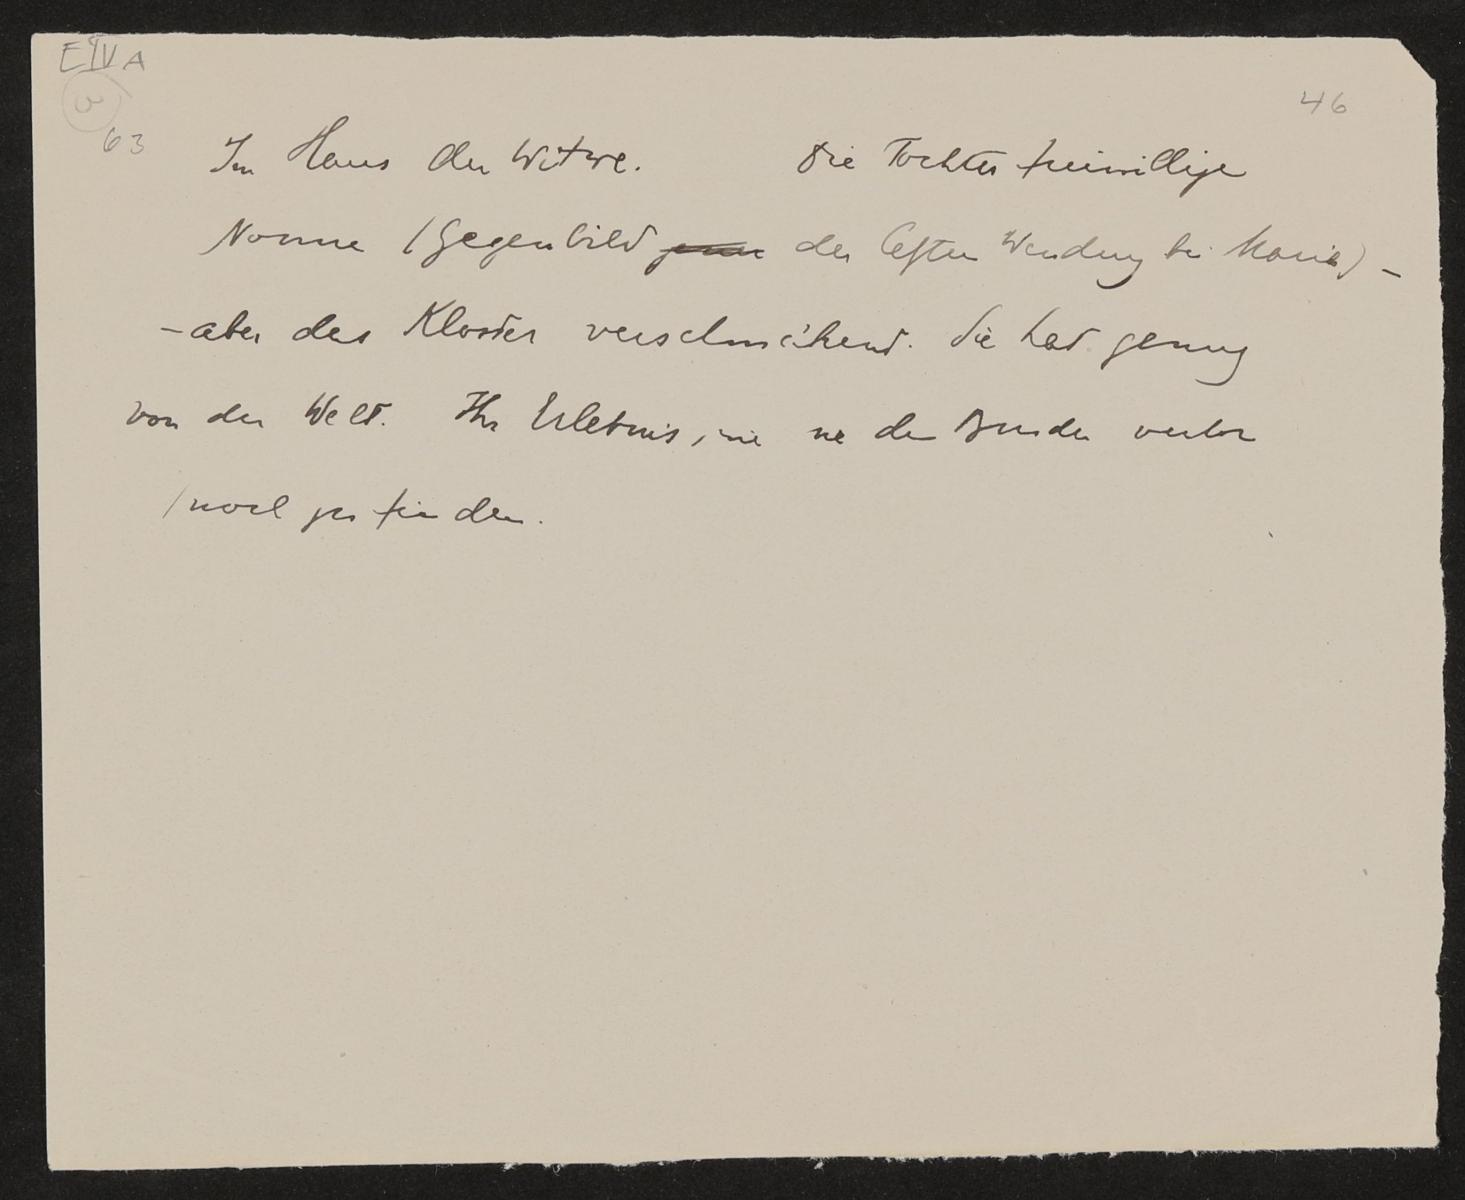 E IV A
3
46
63
Im Haus der Witwe. Die Tochter freiwillige
Nonne (Gegenbild der letzten Wendung bei Maria) –
– aber das Kloster verschmähend. Sie hat genug
von der Welt. Ihr Erlebnis, wie sie den Bruder verlor
/ noch zu finden.